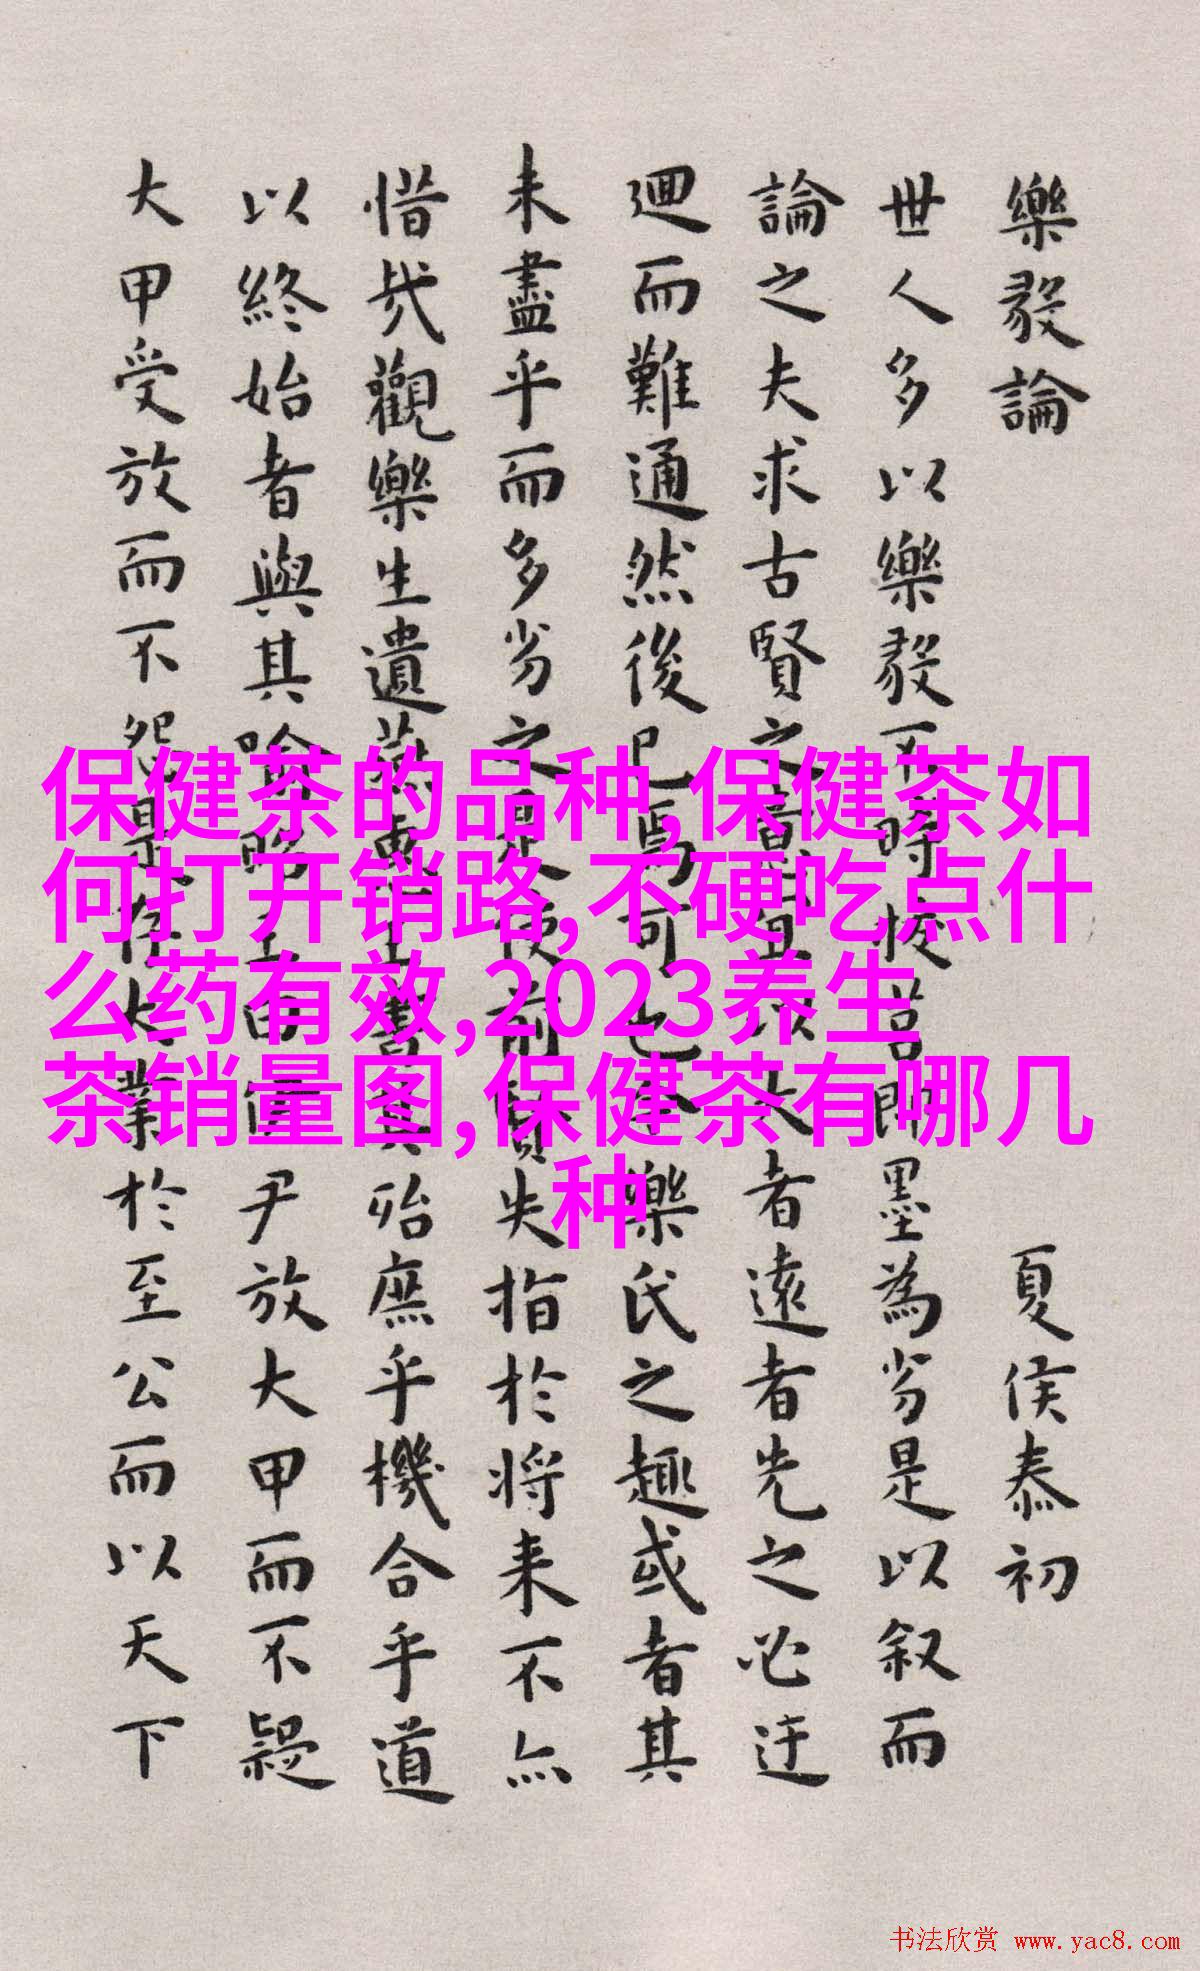 樂毅論 夏侯泰初
世人多以樂毅不時拔莒即墨為劣是以叙而
論之夫求古賢之意宜以大者遠者先之必迂
迴而難通然後已焉可也今樂氏之趣或者其
未盡乎而多劣之是使前賢失指於将来不亦
惜哉觀樂生遺燕惠王書其殆庶乎機合乎道
以終始者與其喻昭王曰伊尹放大甲而不疑
大甲受放而不怨是存大業於至公而以天下
保健茶的品种,保健茶如
何打开销路,不硬吃点什
么药有效,2023养生
茶销量图,保健茶有哪几
种
书法欣赏 www.yac8.com